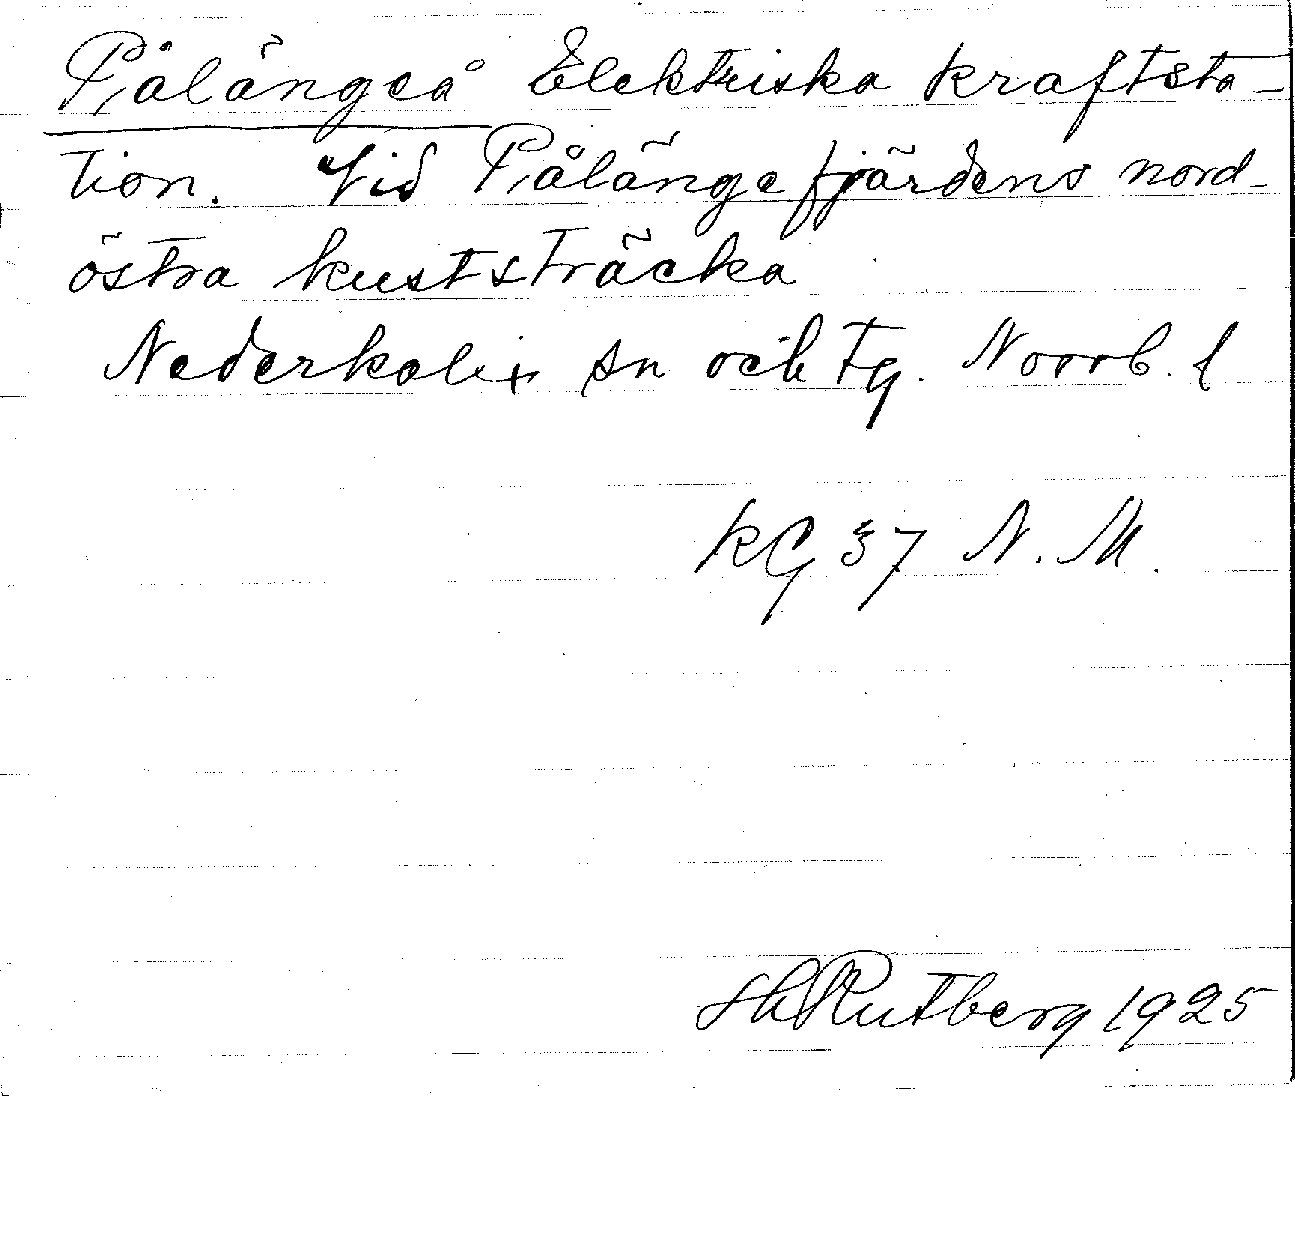 Pålängeå Elektriska kraftsta-
tion. Vid Pålängefjärdens nord-
östra kuststräcka
Nederkalix sn och tg. Norrb. l
KG 37 N. M.
H Rutberg 1925